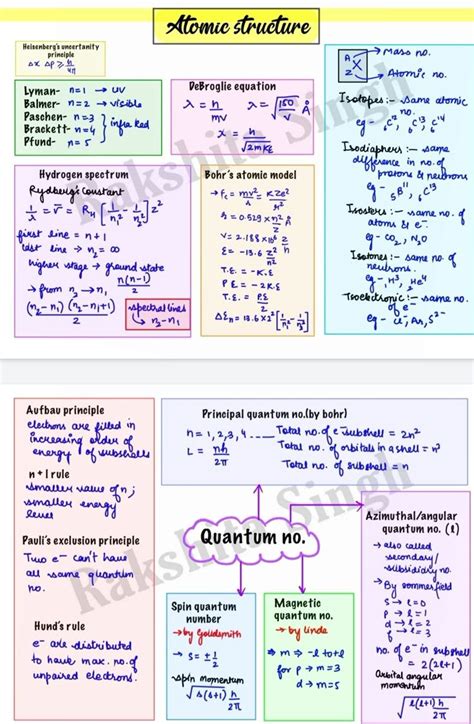 Atomic structure
Heisenberg's uncertanity
principle
Δx Δp ≥ h/4π
Lyman- n=1 → UV
Balmer- n=2 → visible
Paschen- n=3
Brackett- n=4 } infra Red
Pfund- n=5
DeBroglie equation
λ = h/mv λ = √150/V Å
λ = h/√2mKE
A
Z X
→ Mass no.
→ Atomic no.
Isotopes:- same atomic
no.
eg - ₆C¹², ₆C¹³, ₆C¹⁴
Isodiaphers:- same
difference in no. of
protons & neutrons
eg - ₅B¹¹, ₆C¹³
Isosters:- same no. of
atoms & e⁻.
eg - CO₂, N₂O
Isotones:- same no. of
neutrons.
eg - H³, He⁴
Isoelectronic:- same no.
of e⁻
eg - Cl⁻, Ar, S²⁻
Hydrogen spectrum
Rydberg's Constant
1/λ = v̅ = R_H [1/n₁² - 1/n₂²] z²
first line = n+1
last line → n₂ = ∞
higher stage → ground state
n(n-1)/2
→ from n₂ → n₁
(n₂-n₁)(n₂-n₁+1)/2
spectral lines
↳ n₂-n₁
Bohr's atomic model
→ Fc = mv²/r = KZe²/r²
r = 0.529 × n²/z Å
V = 2.188 × 10⁶ z/n
E = -13.6 z²/n²
T.E. = -K.E
P.E = -2K.E
T.E. = P.E/2
ΔEn = 13.6 × z² [1/n₁² - 1/n₂²]
Rakshita Singh
Aufbau principle
electrons are filled in
increasing order of
energy of subshells
n + l rule
smaller value of n;
smaller energy
level
Pauli's exclusion principle
Two e⁻ can't have
all same quantum
no.
Hund's rule
e⁻ are distributed
to have max. no. of
unpaired electrons.
Principal quantum no.(by bohr)
n = 1, 2, 3, 4 ---- Total no. of e⁻ subshell = 2n²
L = nh/2π
Total no. of orbitals in a shell = n²
Total no. of subshell = n
Quantum no.
Rakshita Singh
Spin quantum
number
→ by Goldsmith
→ s = ± 1/2
→ spin momentum
√s(s+1) h/2π
Magnetic
quantum no.
→ by linde
⇒ m → -l to +l
for p → m=3
d → m=5
Azimuthal/angular
quantum no. (l)
→ also called
secondary/
subsidiary no.
→ By sommerfield
s → l=0
p → l=1
d → l=2
f → l=3
no. of e⁻ in subshell
= 2(2l+1)
Orbital angular
momentum
√l(l+1) h/2π